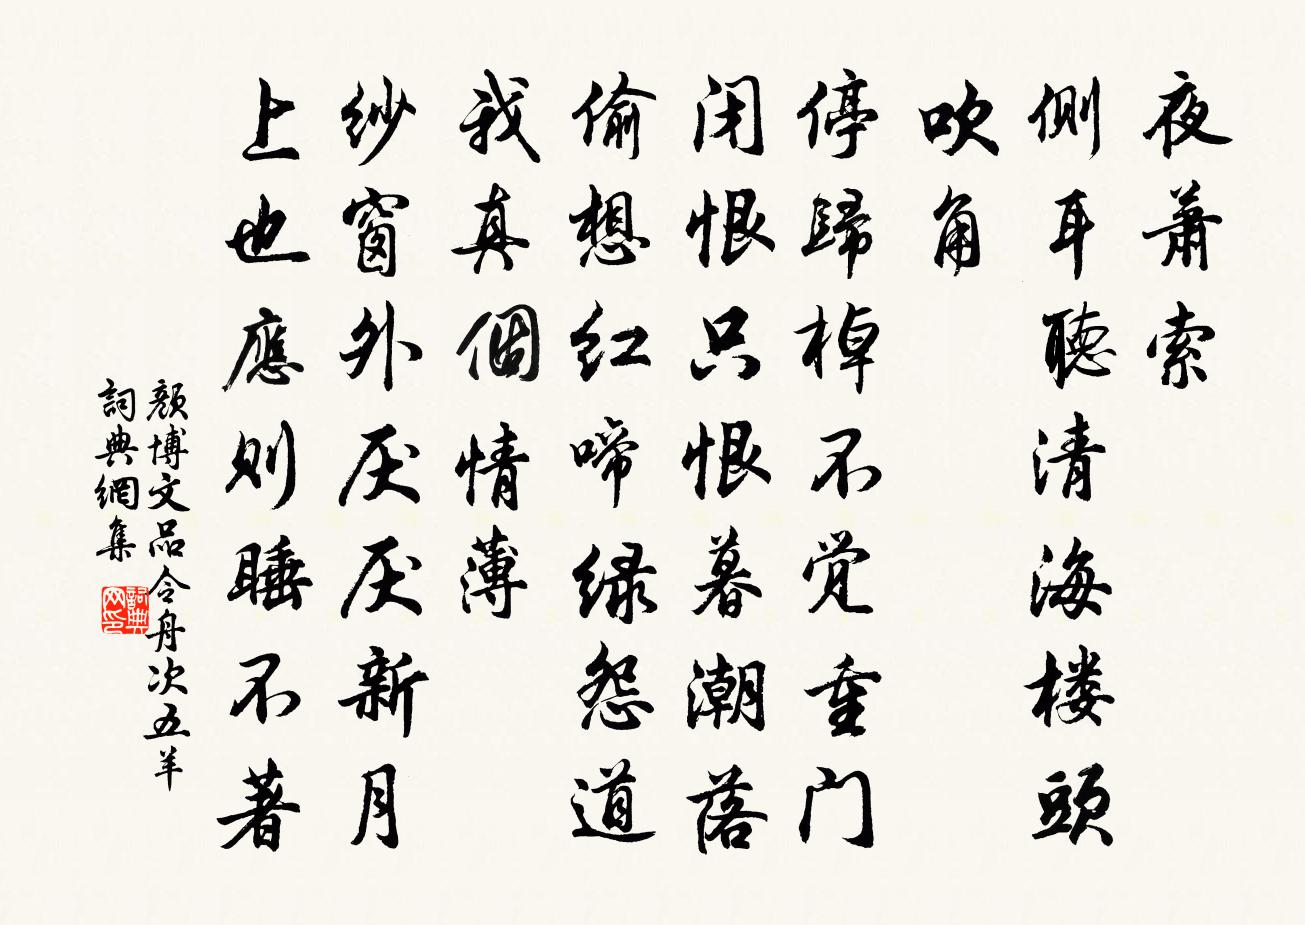 夜萧索
侧耳聽清海楼頭
吹角
停歸棹不觉重门
闭恨只恨暮潮落
偷想红啼绿怨道
我真個情薄
纱窗外厌厌新月
上也應则睡不著
颜博文品令舟次五羊
詞典網集